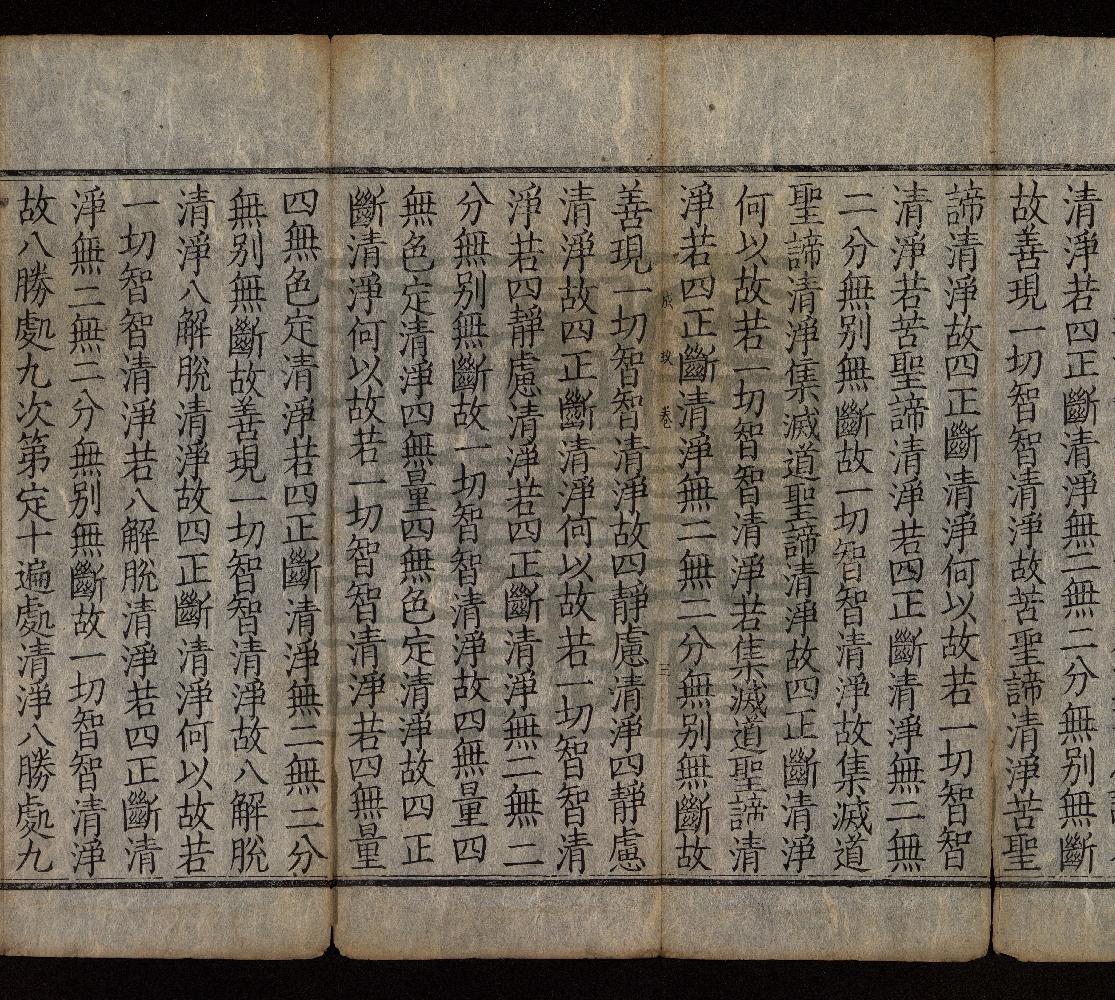 清淨若四正斷清淨無二無二分無別無斷
故善現一切智智清淨故苦聖諦清淨苦聖
諦清淨故四正斷清淨何以故若一切智智
清淨若苦聖諦清淨若四正斷清淨無二無
二分無別無斷故一切智智清淨故集滅道
聖諦清淨集滅道聖諦清淨故四正斷清淨
何以故若一切智智清淨若集滅道聖諦清
淨若四正斷清淨無二無二分無別無斷故
卷
三
善現一切智智清淨故四靜慮清淨四靜慮
清淨故四正斷清淨何以故若一切智智清
淨若四靜慮清淨若四正斷清淨無二無二
分無別無斷故一切智智清淨故四無量四
無色定清淨四無量四無色定清淨故四正
斷清淨何以故若一切智智清淨若四無量
四無色定清淨若四正斷清淨無二無二分
無別無斷故善現一切智智清淨故八解脫
清淨八解脫清淨故四正斷清淨何以故若
一切智智清淨若八解脫清淨若四正斷清
淨無二無二分無別無斷故一切智智清淨
故八勝處九次第定十遍處清淨八勝處九